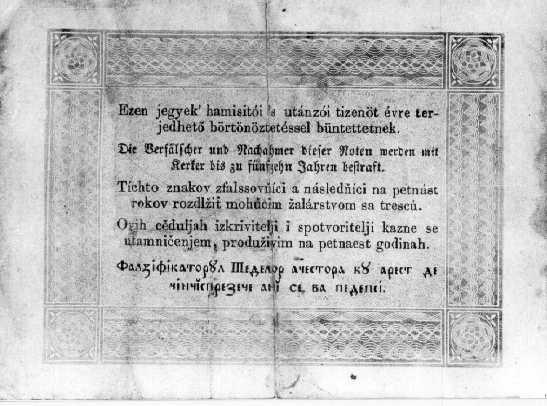 Ezen jegyek' hamisitói 's utánzói tizenöt évre ter-
jedhető börtönöztetéssel büntettetnek.
Die Verfälscher und Nachahmer dieser Noten werden mit
Kerker bis zu fünfzehn Jahren bestraft.
Tíchto znakov zfalssovňíci a následňíci na petnást
rokov rozdlžiť mohúcim žalárstvom sa trescú.
Ovih cěduljah izkrivitelji i spotvoritelji kazne se
utamničenjem, produživim na petnaest godinah.
Фалзіфікаторꙋл ачестора кꙋ арест де
се ва педепсі.